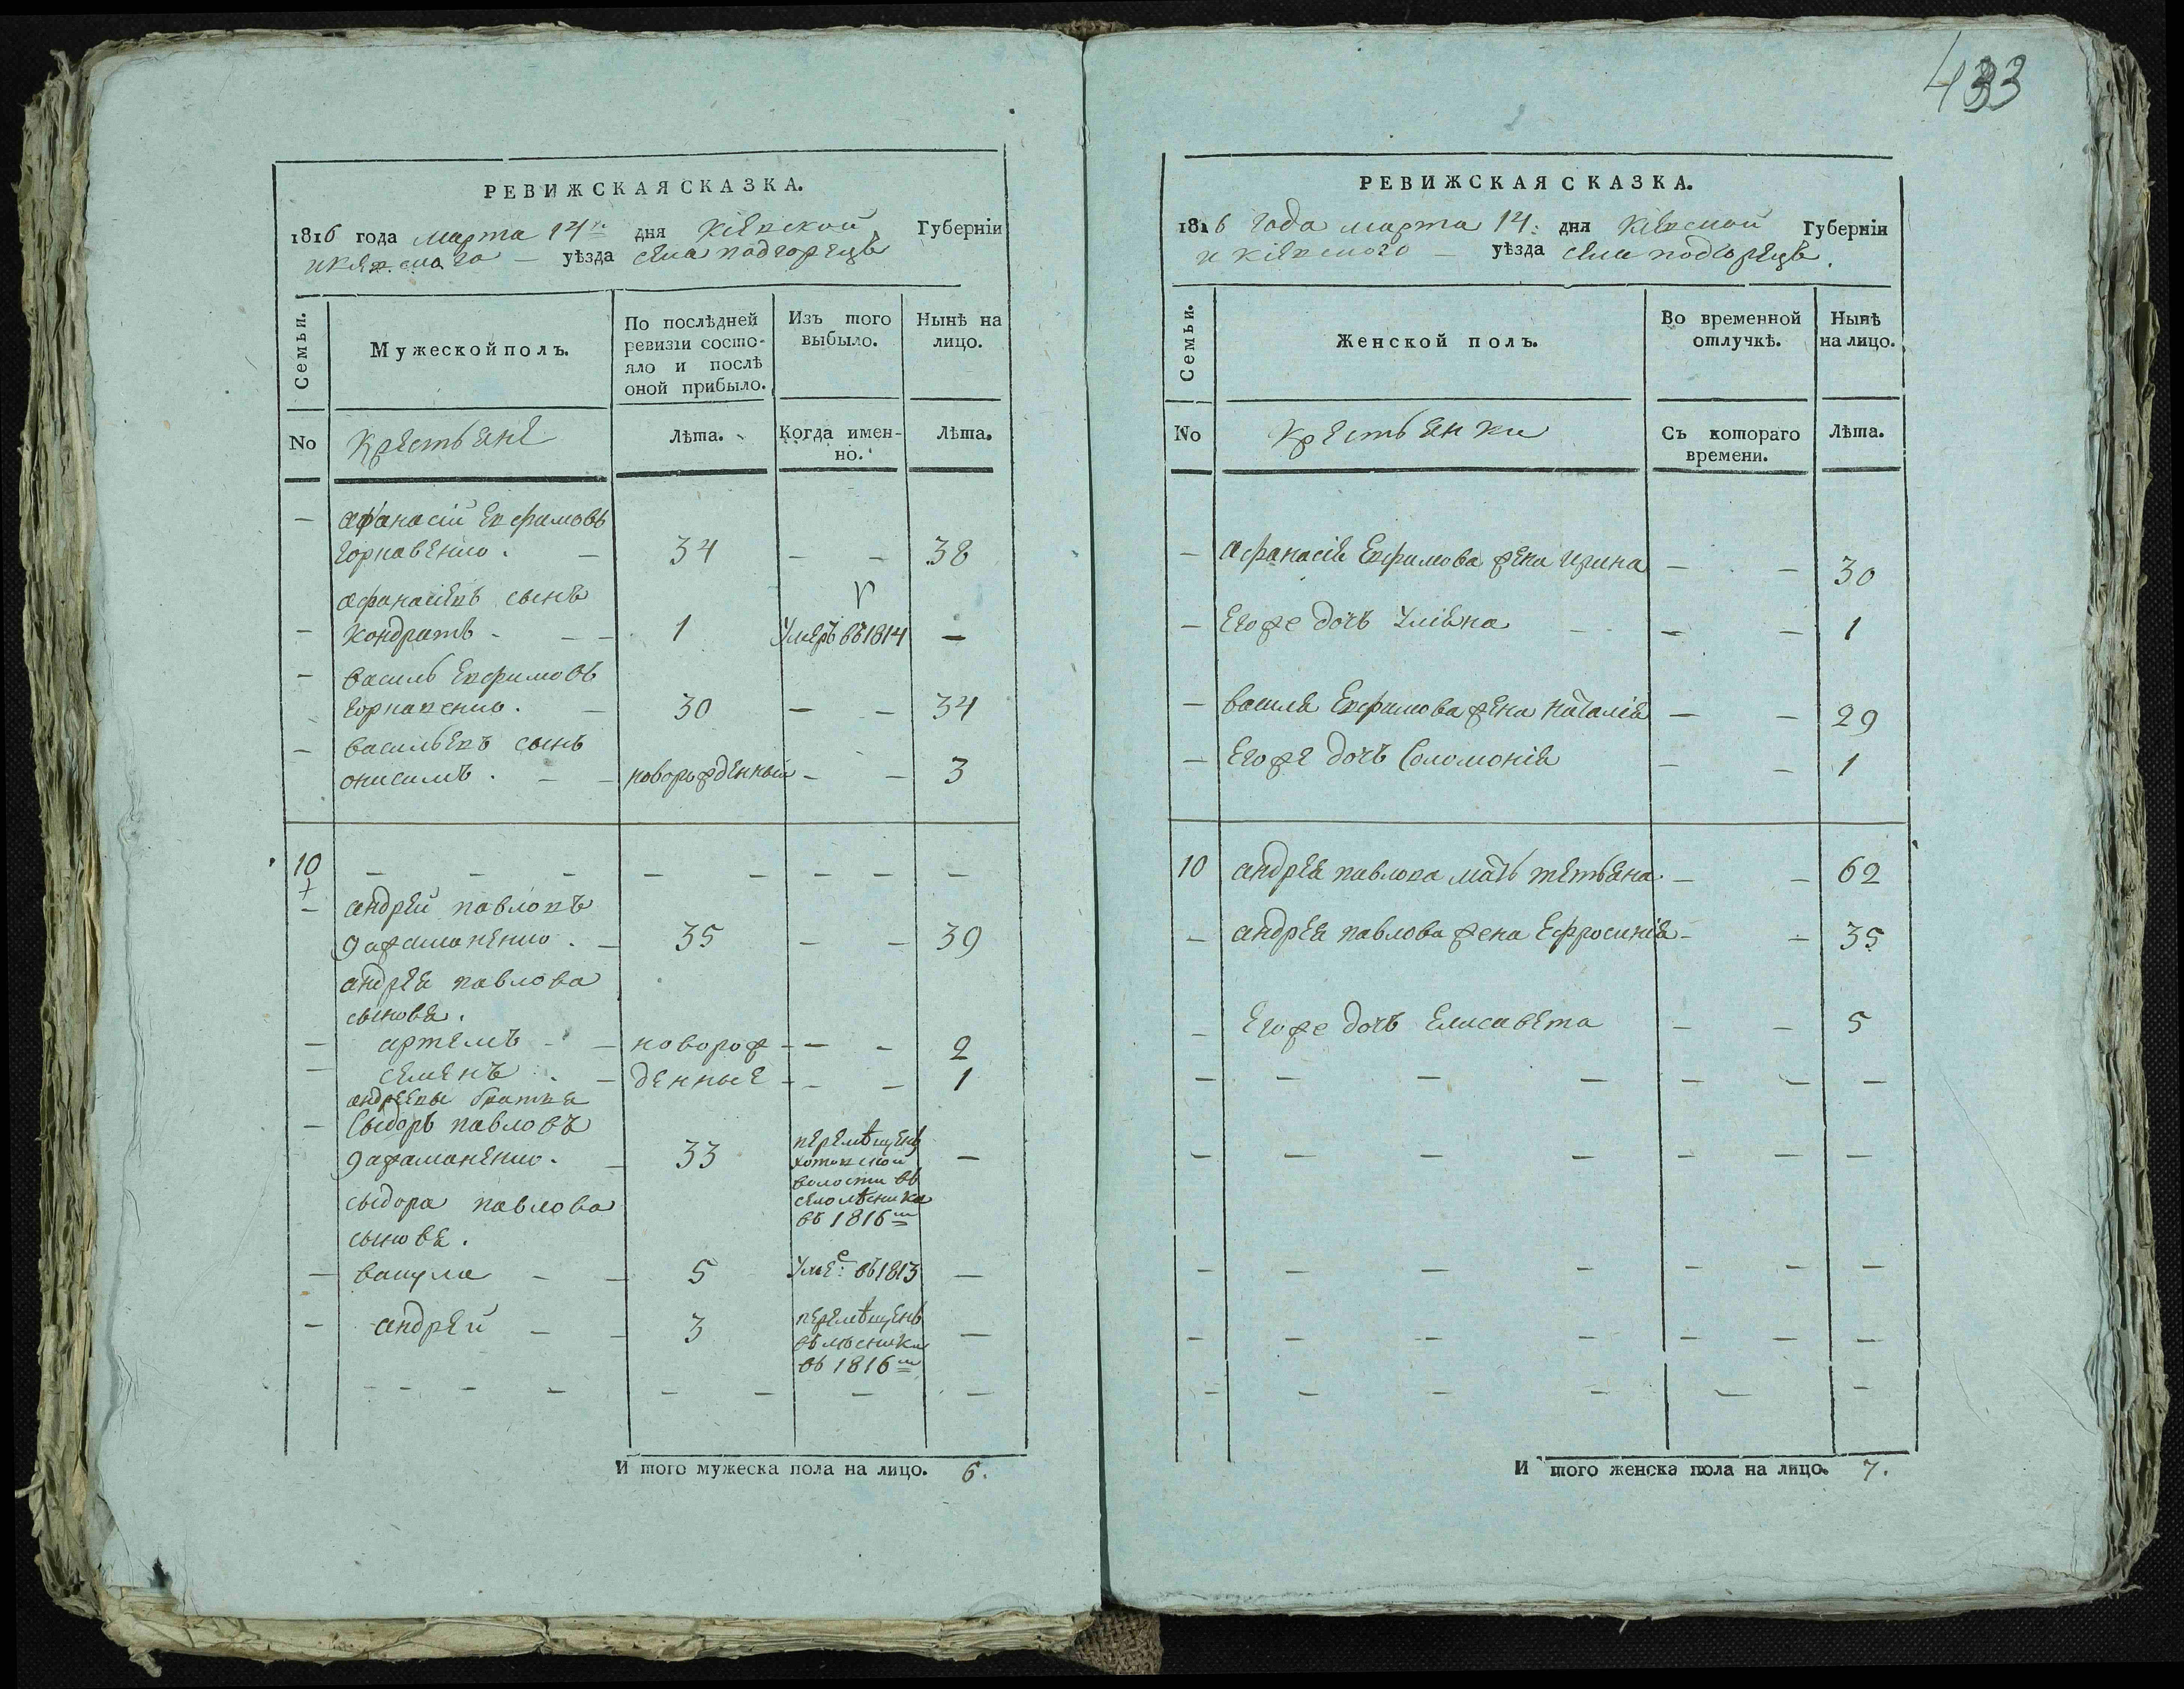 433
РЕВИЖСКАЯ СКАЗКА.
1816 года марта 14 дня Кіевской Губерніи
и Кіевскаго уѣзда села подгорецъ
Семьи.
Мужеской полъ.
По послѣдней
ревизіи состо-
яло и послѣ
оной прибыло.
Изъ того
выбыло.
Нынѣ на
лицо.
No
Крестьяне
Лѣта.
Когда имен-
но.
Лѣта.
— афанасій Евфимовъ
— 34 — — 38
афанасіевъ сынъ
— Кондратъ — — 1 Умеръ въ 1814 —
— василь Евфимовъ
— 30 — — 34
— васильевъ сынъ
онисимъ. — — новорожденный — — 3
10 — — — — — — — — —
— андрей павловъ
— 35 — — 39
андрея павлова
сыновя.
— артемъ — — новорож — — — 2
— семенъ — денные — — — 1
андреевы братья
— Сыдоръ павловъ
— 33 —
перемѣщенъ
волости въ
село лѣсники
въ 1816
сыдора павлова
сыновя.
— вакула — — 5 Уме: въ 1813 —
— андрей — — 3 —
перемѣщенъ
въ лѣсники
въ 1816
— — — — — — — —
И того мужеска пола на лицо. 6.
РЕВИЖСКАЯ СКАЗКА.
1816 года марта 14: дня Кіевской Губерніи
и кіевского — уѣзда села подгорецъ.
Семьи.
Женской полъ.
Во временной
отлучкѣ.
Нынѣ
на лицо.
No
Крестьянки
Съ котораго
времени.
Лѣта.
— афанасія Евфимова жена ирина — — 30
— Егоже дочь Уліяна — — 1
— василя Евфимова жена Наталія — — 29
— Егоже дочь Соломонія — — 1
10 андрея павлова мать тетьяна — — 62
— андрея павлова жена Ефросинія — — 35
— Егоже дочь Елисавета — — 5
— — — — — — —
— — — — — — —
— — — — — — —
— — — — — — —
— — — — — —
И того женска пола на лицо. 7.